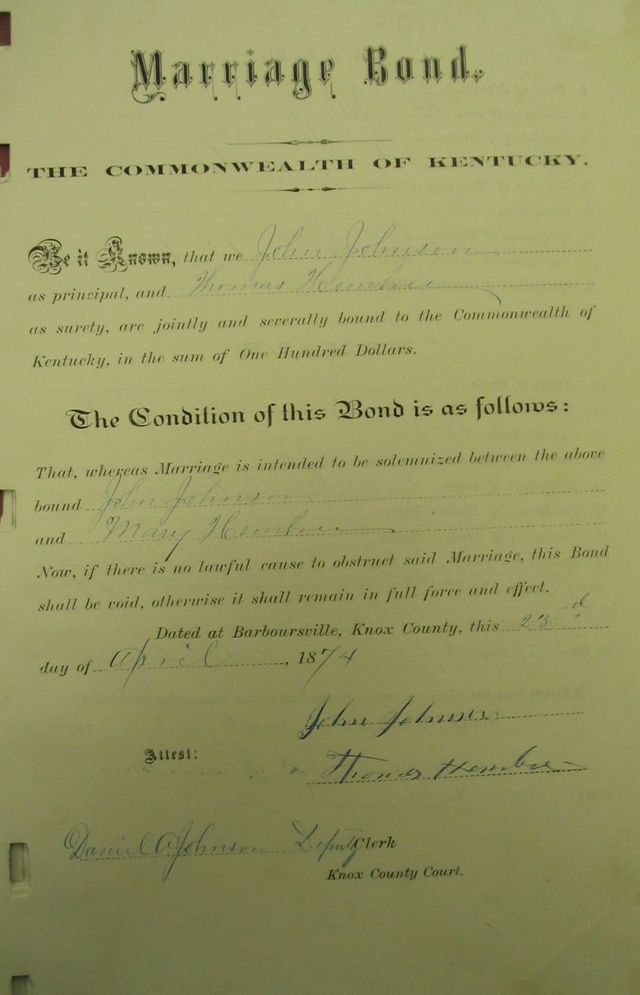 Marriage Bond.
THE COMMONWEALTH OF KENTUCKY.
Be it Known, that we John Johnson
as principal, and Thomas Hembree
as surety, are jointly and severally bound to the Commonwealth of
Kentucky, in the sum of One Hundred Dollars.
The Condition of this Bond is as follows:
That, whereas Marriage is intended to be solemnized between the above
bound John Johnson
and Mary Hembree
Now, if there is no lawful cause to obstruct said Marriage, this Bond
shall be void, otherwise it shall remain in full force and effect.
Dated at Barboursville, Knox County, this 23rd
day of April, 1874
John Johnson
Attest:
Thomas Hembree
Daniel A Johnson Deputy Clerk
Knox County Court.